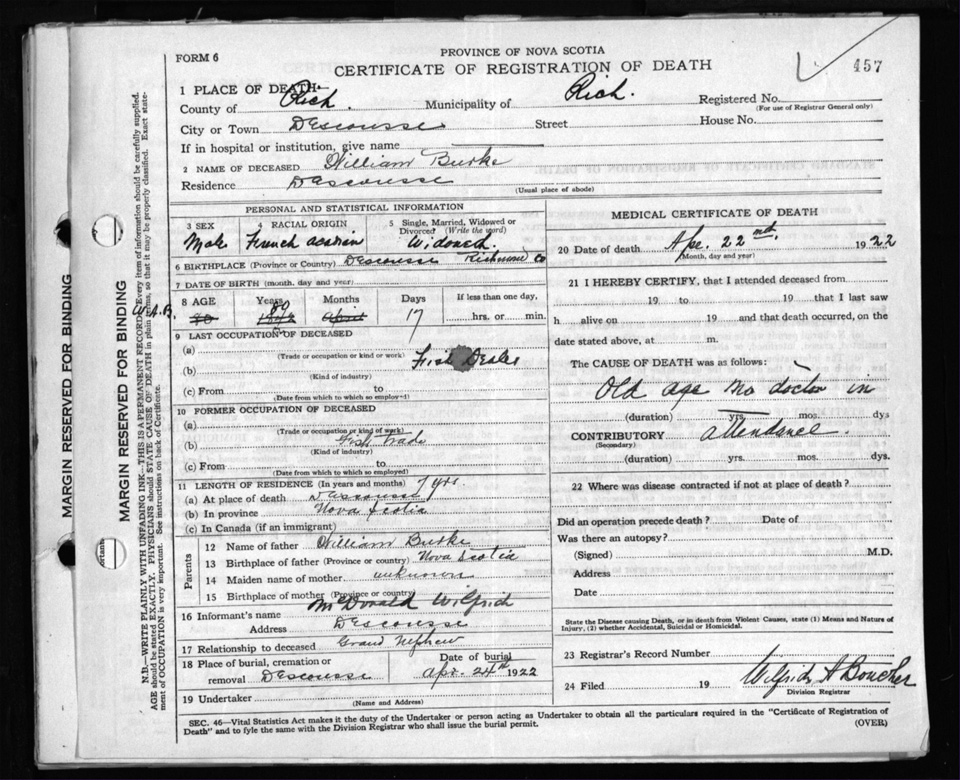 FORM 6
PROVINCE OF NOVA SCOTIA
CERTIFICATE OF REGISTRATION OF DEATH
457
1 PLACE OF DEATH
County of Rich. Municipality of Rich. Registered No.
(For use of Registrar General only)
City or Town Descousse Street House No.
If in hospital or institution, give name
2 NAME OF DECEASED William Burke
Residence Descousse
(Usual place of abode)
PERSONAL AND STATISTICAL INFORMATION
3 SEX 4 RACIAL ORIGIN 5 Single, Married, Widowed or Divorced (Write the word)
Male French Widowed
6 BIRTHPLACE (Province or Country) Descousse Richmond Co
7 DATE OF BIRTH (month, day and year)
8 AGE Years Months Days If less than one day,
W.A.B. 80 April 17 hrs. or min.
9 LAST OCCUPATION OF DECEASED
(a)
(Trade or occupation or kind or work)
(b) Fish Dealer
(Kind of industry)
(c) From to
(Date from which to which so employed)
10 FORMER OCCUPATION OF DECEASED
(a)
(Trade or occupation or kind of work)
(b) Fish Trade
(Kind of industry)
(c) From to
(Date from which to which so employed)
11 LENGTH OF RESIDENCE (In years and months) yrs.
(a) At place of death Descousse
(b) In province Nova Scotia
(c) In Canada (if an immigrant)
Parents
12 Name of father William Burke
13 Birthplace of father (Province or country) Nova Scotia
14 Maiden name of mother unknown
15 Birthplace of mother (Province or country)
16 Informant's name McDonald Wilfrid
Address Descousse
17 Relationship to deceased Grand Nephew
18 Place of burial, cremation or removal Descousse Date of burial Apr. 24th 1922
19 Undertaker
(Name and Address)
MEDICAL CERTIFICATE OF DEATH
20 Date of death Apr. 22nd. 1922
(Month, day and year)
21 I HEREBY CERTIFY, that I attended deceased from
19 to 19 that I last saw
h alive on 19 and that death occurred, on the
date stated above, at m.
The CAUSE OF DEATH was as follows:
Old age No doctor in
(duration) yrs. mos. dys
CONTRIBUTORY attendance.
(Secondary)
(duration) yrs. mos. dys.
22 Where was disease contracted if not at place of death?
Did an operation precede death? Date of
Was there an autopsy?
(Signed) M.D.
Address
Date
State the Disease causing Death, or in death from Violent Causes, state (1) Means and Nature of
Injury, (2) whether Accidental, Suicidal or Homicidal.
23 Registrar's Record Number
24 Filed 19 Wilfrid A Boucher
Division Registrar
SEC. 46—Vital Statistics Act makes it the duty of the Undertaker or person acting as Undertaker to obtain all the particulars required in the "Certificate of Registration of
Death" and to fyle the same with the Division Registrar who shall issue the burial permit.
(OVER)
MARGIN RESERVED FOR BINDING
MARGIN RESERVED FOR BINDING
N.B.—WRITE PLAINLY WITH UNFADING INK—THIS IS A PERMANENT RECORD. Every item of information should be carefully supplied.
AGE should be stated EXACTLY. PHYSICIANS should STATE CAUSE OF DEATH in plain terms, so that it may be properly classified. Exact state-
ment of OCCUPATION is very important. See instructions on back of Certificate.